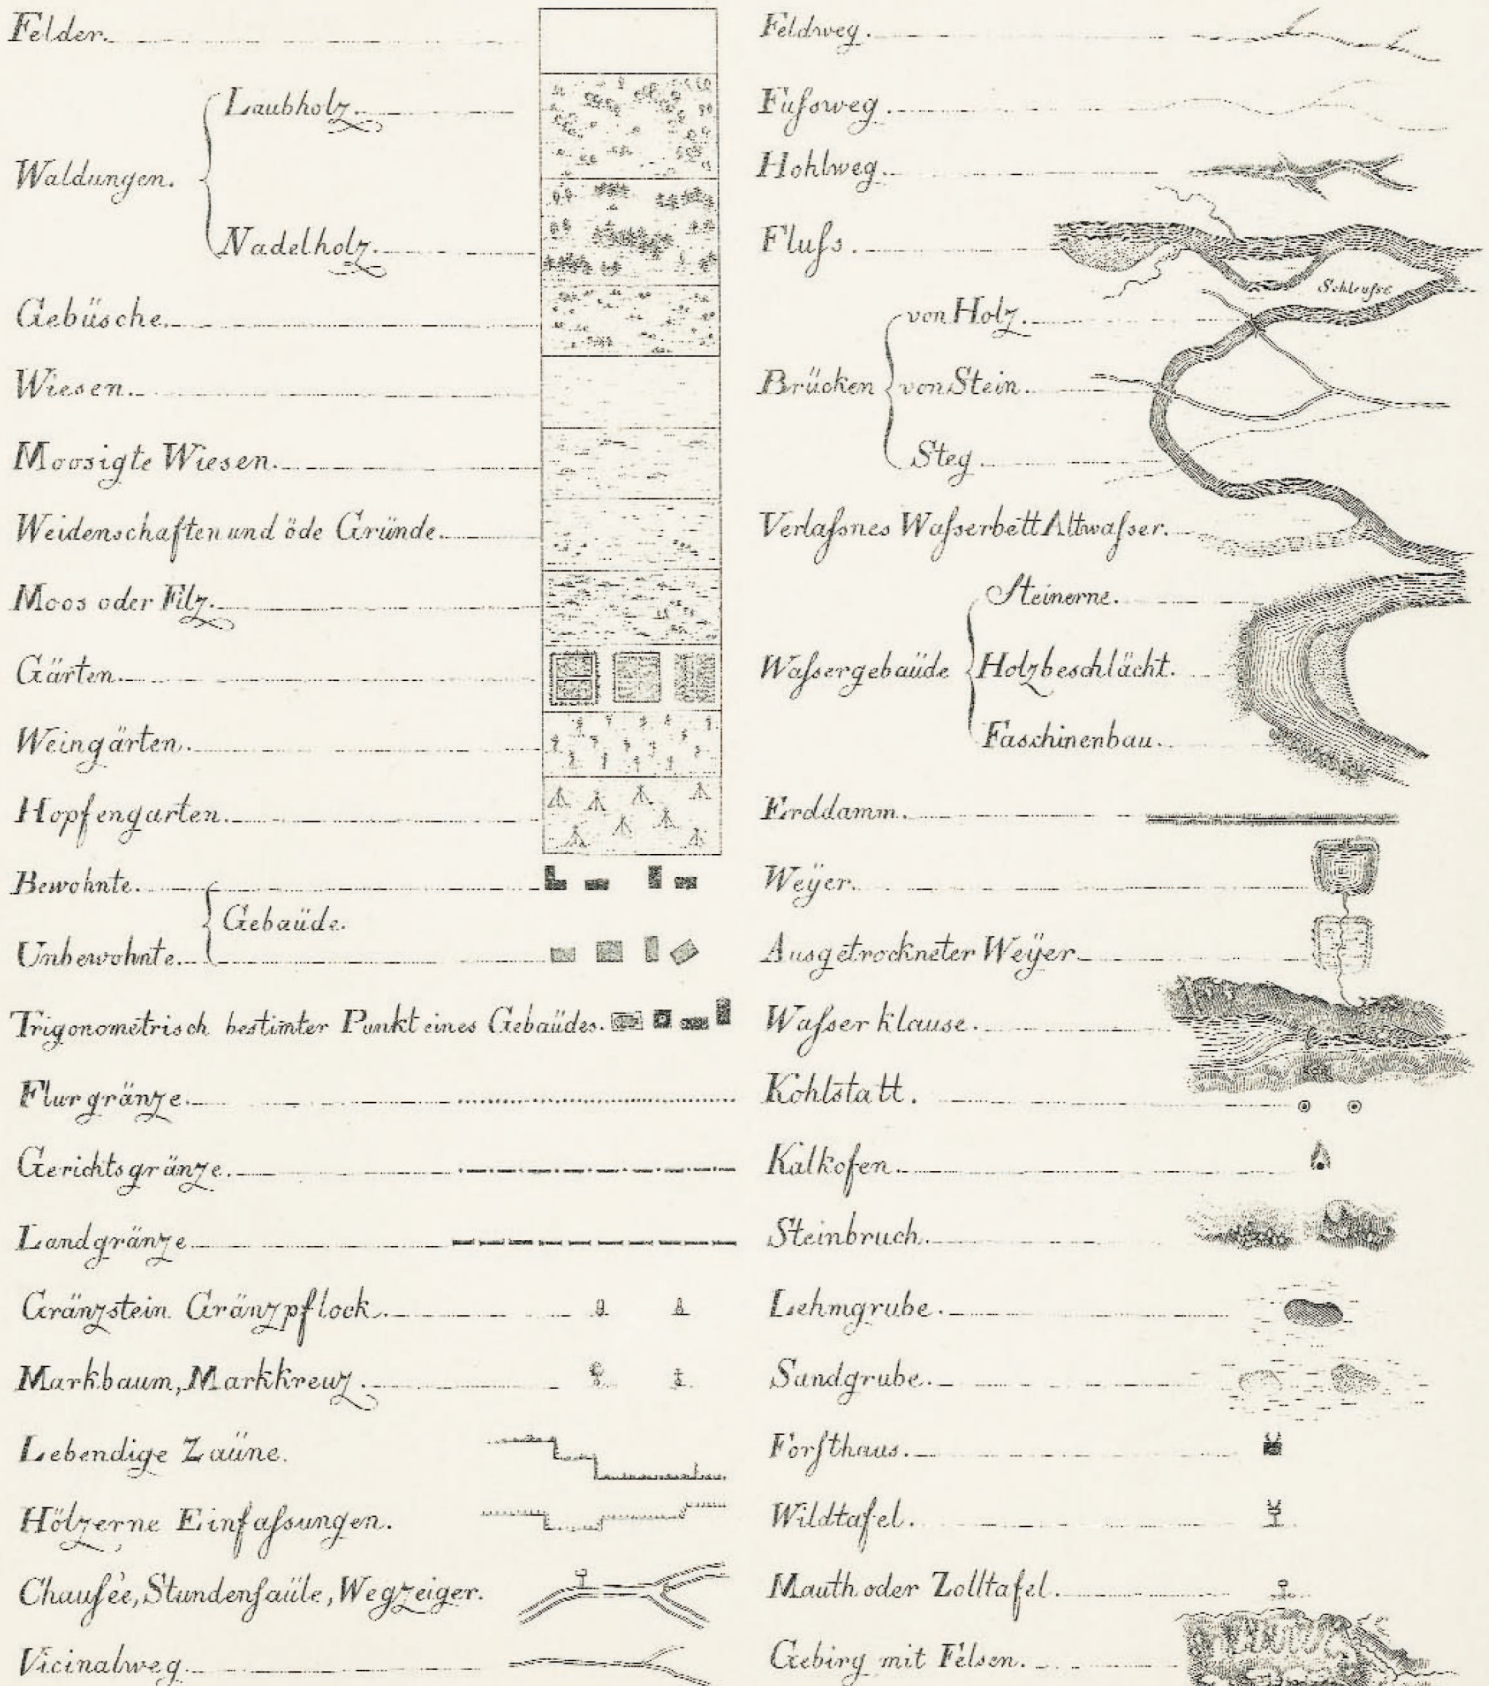 Felder.
Waldungen.
Laubholz.
Nadelholz.
Gebüsche.
Wiesen.
Moosigte Wiesen.
Weidenschaften und öde Gründe.
Moos oder Filz.
Gärten.
Weingärten.
Hopfengarten.
Bewohnte.
Gebaüde.
Unbewohnte.
Trigonometrisch bestim̅ter Punkt eines Gebaüdes.
Flurgränze.
Gerichtsgränze.
Landgränze
Gränzstein. Gränzpflock.
Markbaum, Markkreuz.
Lebendige Zaüne.
Hölzerne Einfaſsungen.
Chauſsèe, Stundenſaüle, Wegzeiger.
Vicinalweg.
Feldweg.
Fuſsweg.
Hohlweg.
Fluſs.
Schleuſse
Brücken
von Holz.
von Stein.
Steg.
Verlaſsnes Waſserbett Altwaſser.
Waſsergebaüde
Steinerne.
Holzbeschlächt.
Faschinenbau.
Erddamm.
Weÿer.
Ausgetrockneter Weÿer.
Waſserklause.
Kohlstatt.
Kalkofen.
Steinbruch.
Lehmgrube.
Sandgrube.
Forſthaus.
Wildtafel.
Mauth oder Zolltafel.
Gebirg mit Felsen.